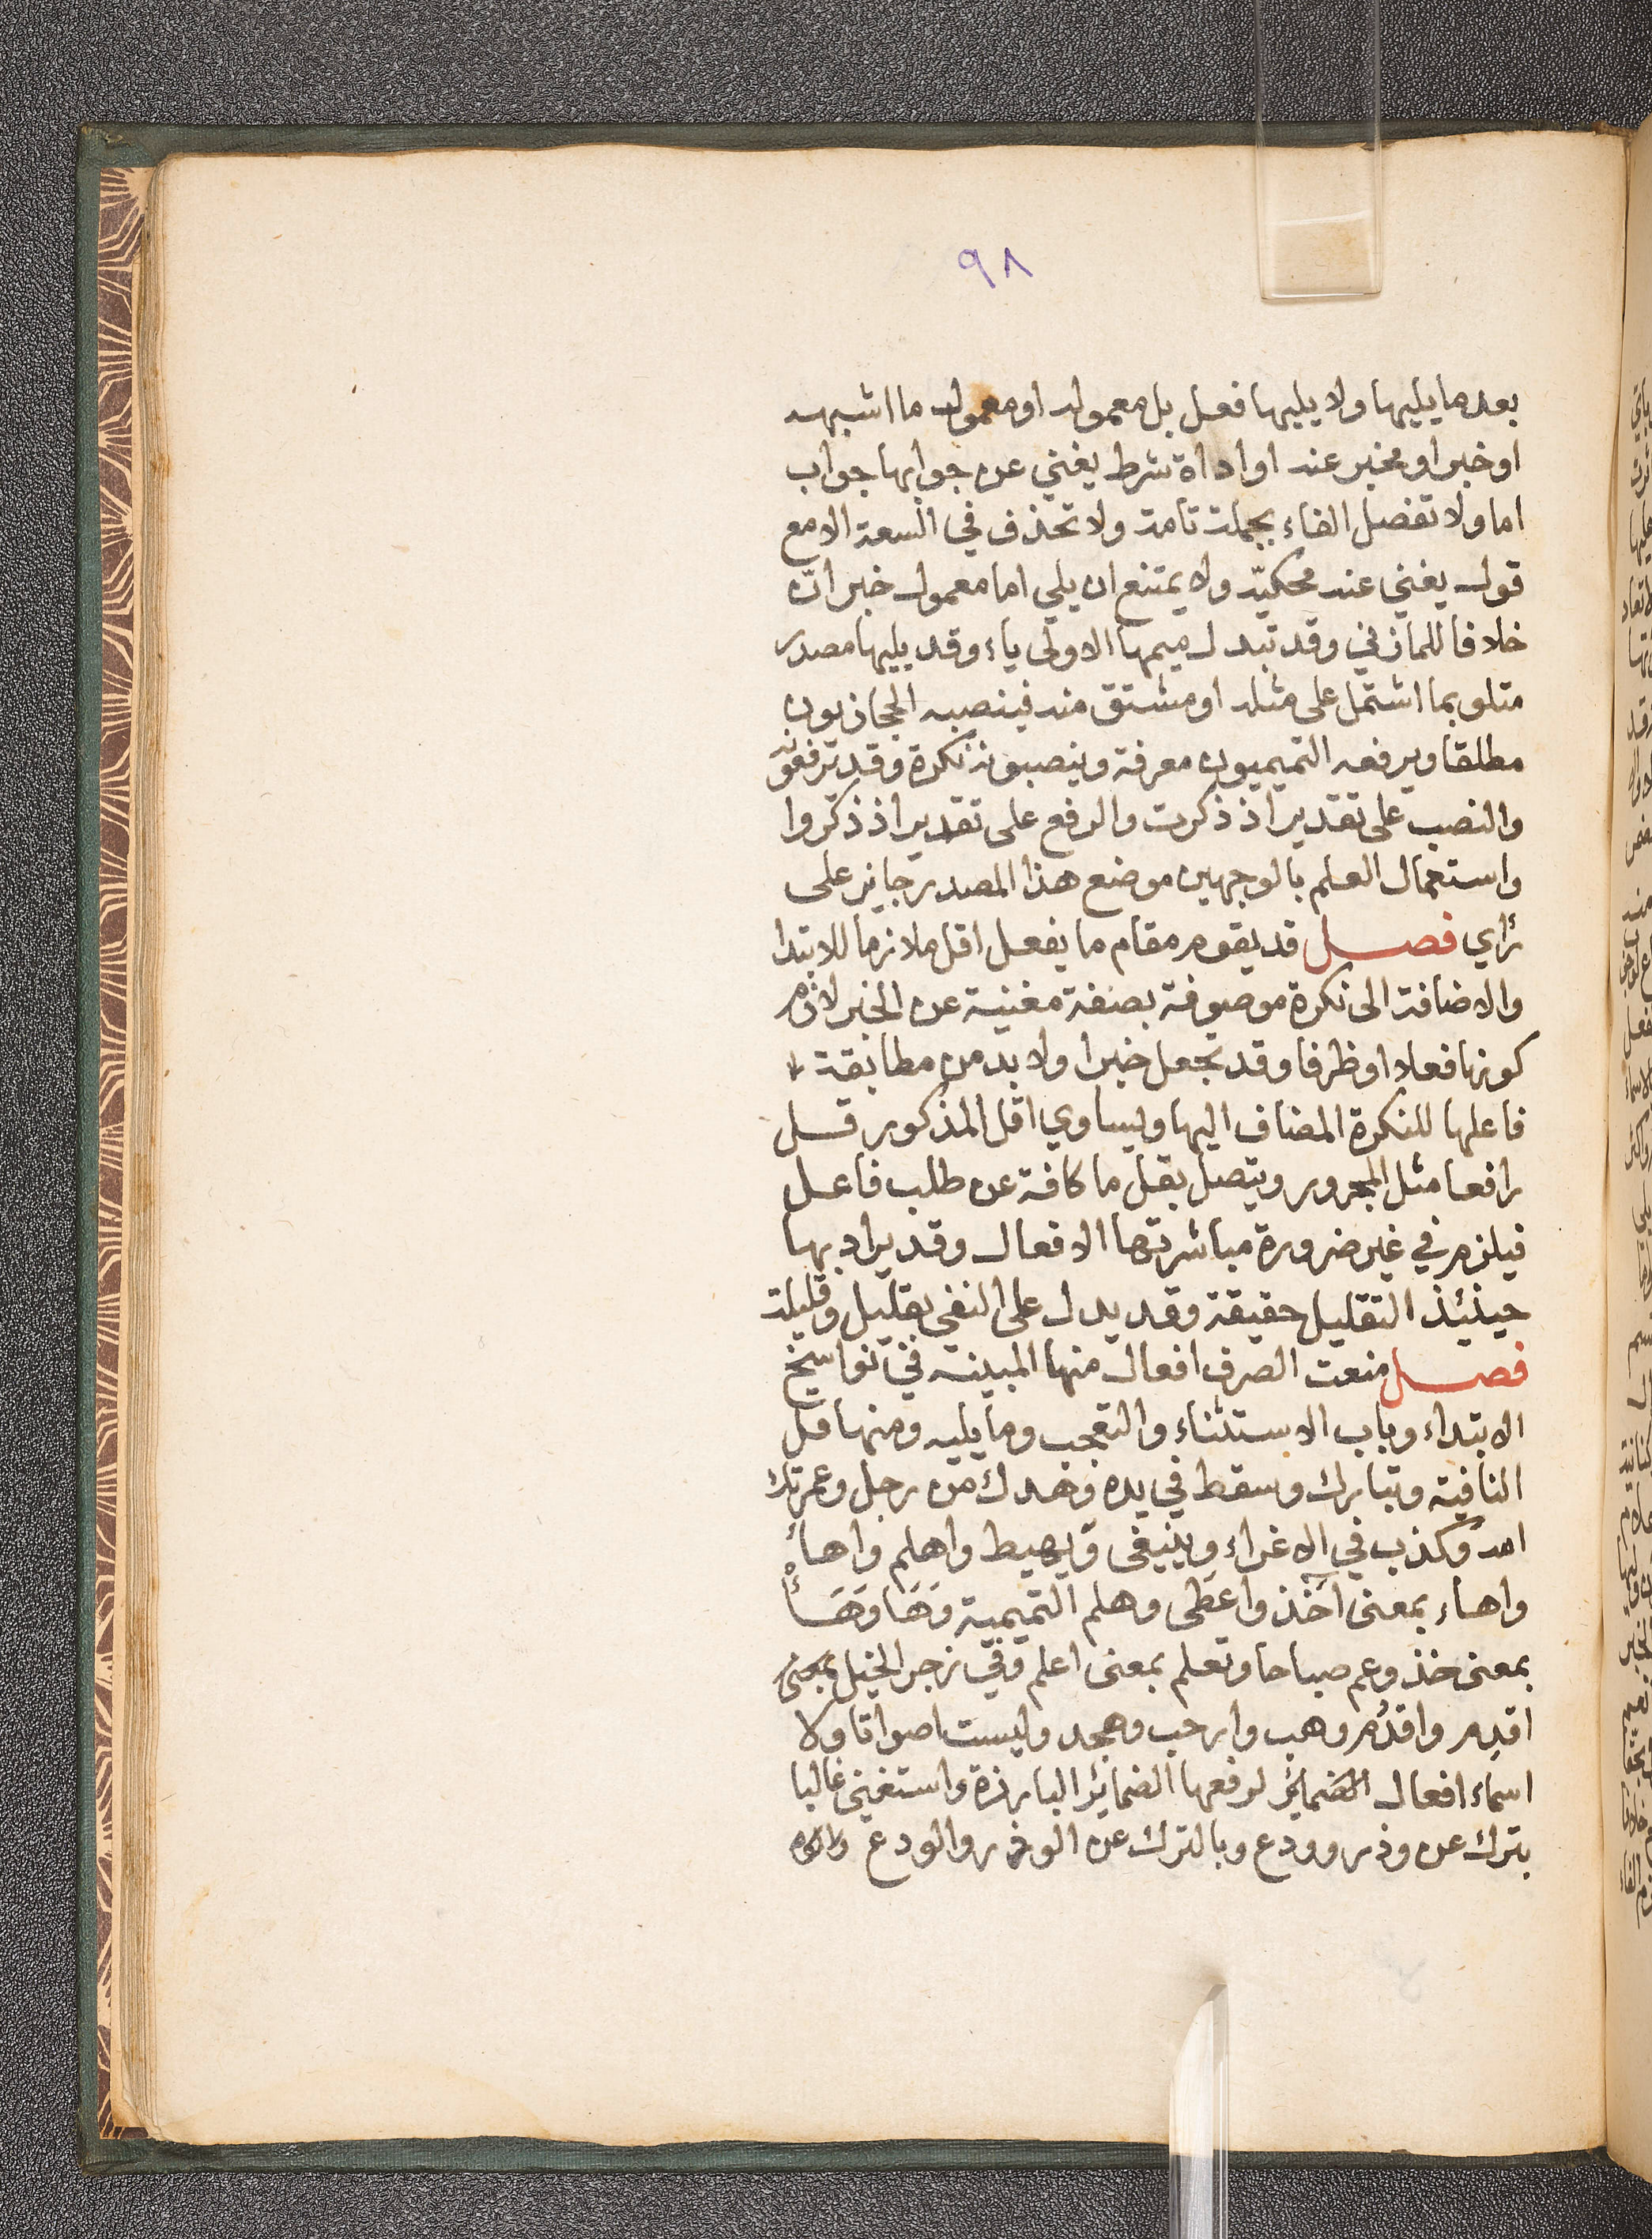 ٩٨
بعد ما يليها ولا يليها فعل بل معموله او معمول ما اشبهه
او خبر او مخبر عنه او اداة شرط يغني عن جوابها جواب
اما ولا تفصل الفاء بجملة تامة ولا تحذف في السعة الا مع
قول يغني عنه محكيّه ولا يمتنع ان يلي اما معمول خبر انّ
خلافا للمازني وقد تبدل ميمها الاولى ياء وقد يليها مصدر
متلو بما اشتمل على مثله او مشتق منه فينصبه الحجازيون
مطلقا ويرفعه التميميون معرفة وينصبونه نكرة وقد ترفعونه
والنصب على تقدير اذ ذكرت والرفع على تقدير اذ ذكروا
واستعمال العلم بالوجهين موضع هذا المصدر جايز على
رأي فصل قد يقوم مقام ما يفعل اقل ملازما للابتدا
والاضافة الى نكرة موصوفة بصفة مغنية عن الخبر لازم
كونها فعلا او ظرفا وقد تجعل خبرا ولا بد من مطابقة
فاعلها للنكرة المضاف اليها ويساوي اقل المذكور قل
رافعا مثل المجرور ويتصل بقل ما كافة عن طلب فاعل
فيلزم في غير ضرورة مباشرتها الافعال وقد يراد بها
حينئذ التقليل حقيقة وقد يدل على النفي بقليل وقليلة
فصل منعت الصرف افعال منها المبينة في نواسخ
الابتداء وباب الاستثناء والتعجب وما يليه ومنها قل
النافية وتبارك وسقط في يده وهدك من رجل وعمرتك
الله وكذب في الاغراء وينبغى ويهيط واهلم واهأ
واهاء بمعنى آخذ واعطى وهلم التميمية وَهَا وَهَأْ
بمعنى خذ وعم صباحا وتعلم بمعنى اعلم وفي زجر الخيل بمعنى
اقدِم واقدُم وهب وارحب وهجد وليست اصواتا ولا
اسماء افعال لرفعها الضمائر البارزة واستغني غالبا
بترك عن وذر وودع وبالترك عن الوذر والودع